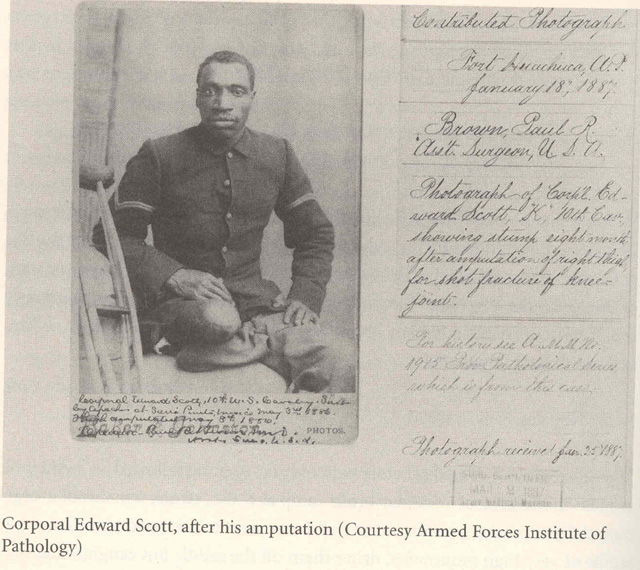 Contributed Photograph.
Fort Huachuca, A.T.
January 18", 1887.
Brown, Paul R.
Asst. Surgeon, U. S. A.
Photograph of Corpl. Ed-
ward Scott, "K", 10th Cav.
showing stump eight months
after amputation of right thigh
for shot fracture of knee-
joint.
For history see A.M.M. No.
1925 Pathological Series
which is from this case.
Photograph received Jan. 25" 1887.
Corporal Edward Scott, 10th U.S. Cavalry. Shot
by Apaches at May 3rd 1886.
Thigh amputated May 1886.
PHOTOS.
Corporal Edward Scott, after his amputation (Courtesy Armed Forces Institute of
Pathology)